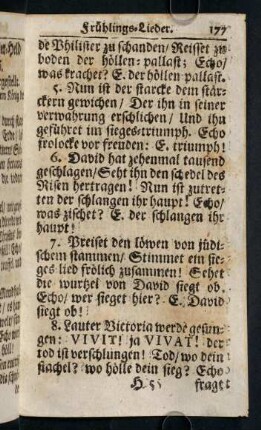 Frühlings-Lieder. 177
de Philister zu schanden/ Reisset zu
boden der höllen-pallast; Echo/
was krachet? E. der höllen pallast.
5. Nun ist der starcke dem stär-
ckern gewichen/ Der ihn in seiner
verwahrung erschlichen/ Und ihn
geführet im sieges-triumph. Echo
frolocke vor freuden: E. triumph!
6. David hat zehenmal tausend
geschlagen/ Seht ihn den schedel des
Risen hertragen! Nun ist zutret-
ten der schlangen ihr haupt! Echo/
was zischet? E. der schlangen ihr
haupt!
7. Preiset den löwen von jüdi-
schem stammen/ Stimmet ein sie-
ges lied frölich zusammen! Sehet
die wurtzel von David siegt ob.
Echo/ wer sieget hier? E. David
siegt ob!
8. Lauter Victoria werde gesun-
gen: VIVIT! ja VIVAT! der
tod ist verschlungen! Tod/ wo dein
stachel? wo hölle dein sieg? Echo
fragt